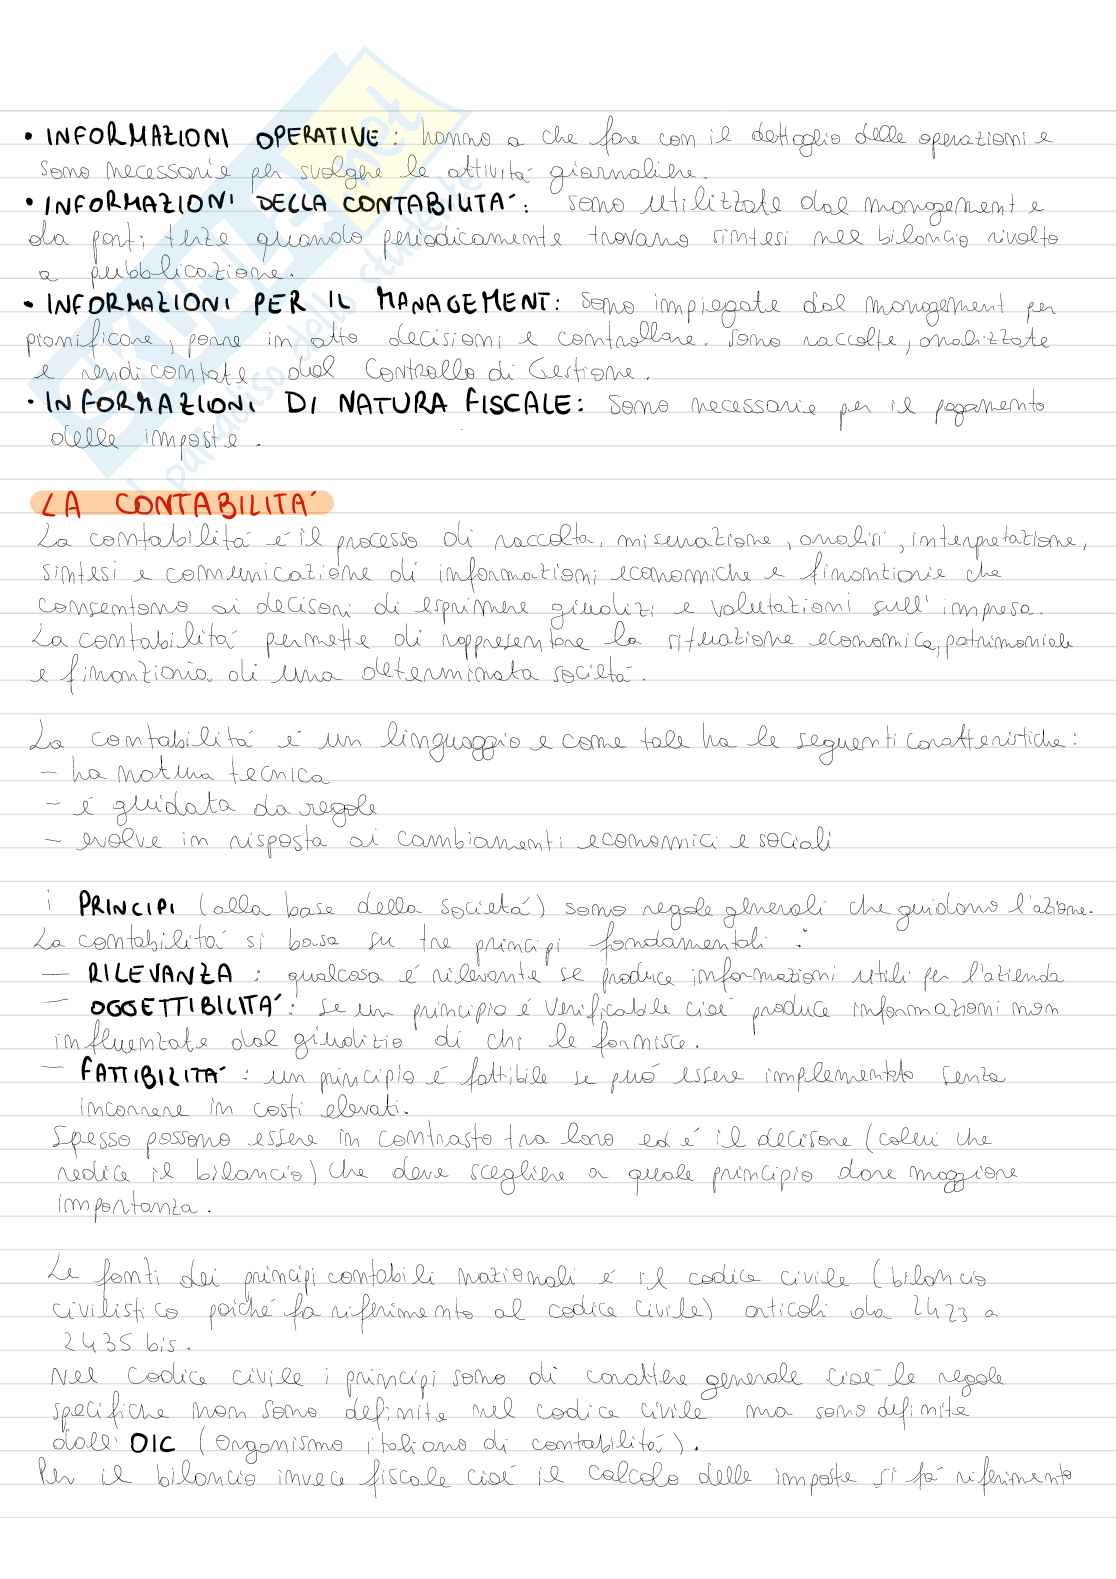 • INFORMAZIONI OPERATIVE : hanno a che fare con il dettaglio delle operazioni e
sono necessarie per svolgere le attività giornaliere.
• INFORMAZIONI DELLA CONTABILITÀ : sono utilizzate dal management e
da parti terze quando periodicamente trovano sintesi nel bilancio rivolto
a pubblicazione.
• INFORMAZIONI PER IL MANAGEMENT: sono impiegate dal management per
pianificare, porre in atto decisioni e controllare. Sono raccolte, analizzate
e rendicontate dal Controllo di Gestione.
• INFORMAZIONI DI NATURA FISCALE: sono necessarie per il pagamento
delle imposte.
LA CONTABILITÀ
La contabilità è il processo di raccolta, misurazione, analisi, interpretazione,
sintesi e comunicazione di informazioni economiche e finanziarie che
consentono ai decisori di esprimere giudizi e valutazioni sull'impresa.
La contabilità permette di rappresentare la situazione economica, patrimoniale
e finanziaria di una determinata società.
La contabilità è un linguaggio e come tale ha le seguenti caratteristiche:
- ha natura tecnica
- è guidata da regole
- evolve in risposta ai cambiamenti economici e sociali
i PRINCIPI (alla base della società) sono regole generali che guidano l'azione.
La contabilità si basa su tre principi fondamentali :
- RILEVANZA : qualcosa è rilevante se produce informazioni utili per l'azienda
- OGGETTIBILITÀ : se un principio è verificabile cioè produce informazioni non
influenzate dal giudizio di chi le fornisce.
- FATTIBILITÀ : un principio è fattibile se può essere implementato senza
incorrere in costi elevati.
Spesso possono essere in contrasto tra loro ed è il decisore (colui che
redice il bilancio) che deve scegliere a quale principio dare maggiore
importanza.
Le fonti dei principi contabili nazionali è il codice civile (bilancio
civilistico poiché fa riferimento al codice civile) articoli da 2423 a
2435 bis.
Nel Codice civile i principi sono di carattere generale cioè le regole
specifiche non sono definite nel codice civile ma sono definite
dall' OIC (Organismo italiano di contabilità).
Per il bilancio invece fiscale cioè il calcolo delle imposte si fà riferimento